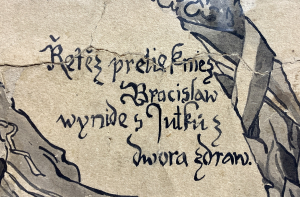 Řetěz pretie kniez
Bracislaw
wynide s Jutku z
dwora zdraw.